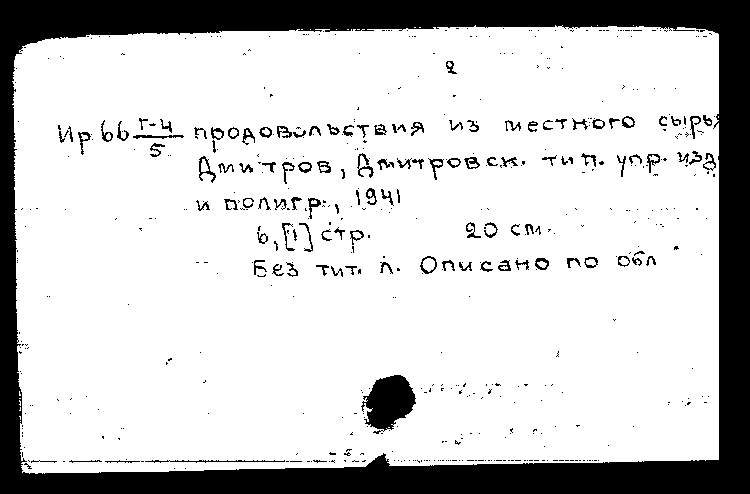 2
Ир 66 Г-4/5 продовольствия из местного сырья
Дмитров, Дмитровск. тип. упр. изд.
и полигр., 1941
6, [1] стр. 20 см.
Без тит. л. Описано по обл.